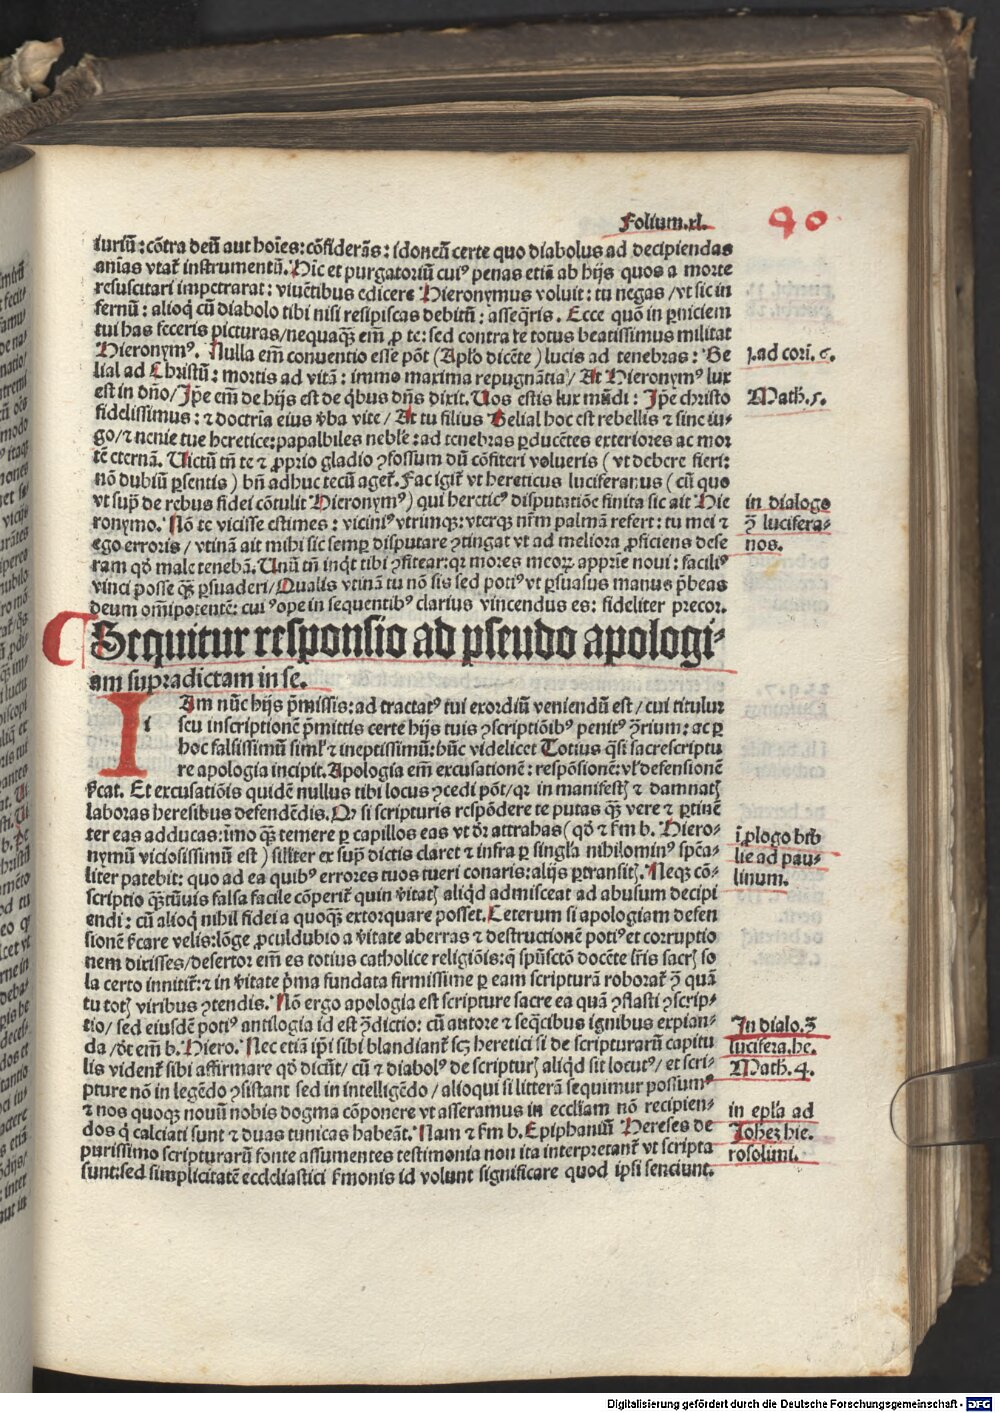 Folium.xl.
40
iuriū: cōtra deū aut hoīes: cōsiderās: idoneū certe quo diabolus ad decipiendas
aīas vtat᷑ instrumentū. Hic et purgatoriū cuiꝰ penas etiā ab hijs quos a morte
resuscitari impetrarat: viuētibus edicere Hieronymus voluit: tu negas / vt sic in
fernū: alioq̄ cū diabolo tibi nisi resipiscas debitū: asseq̄ris. Ecce quō in ꝑniciem
tui has feceris picturas / nequaqꝫ em̄ ꝓ te: sed contra te totus beatissimus militat
Hieronymꝰ. Nulla em̄ conuentio esse pōt (Apl'o dicēte) lucis ad tenebras: Be
lial ad Christū: mortis ad vitā: immo maxima repugnātia / At Hieronymꝰ lux
est in dn̄o / Ip̄e em̄ de hijs est de q̇bus dn̄s dixit. Uos estis lux mūdi: Ip̄e christo
fidelissimus: ⁊ doctrīa eius v̄ba vite / At tu filius Belial hoc est rebellis ⁊ sine iu-
go / ⁊ nenie tue heretice: papalbiles neble: ad tenebras ꝑducētes exteriores ac mor
tē eternā. Uictū tn̄ te ⁊ ꝓprio gladio ↄfossum dū cōfiteri volueris (vt debere fieri:
nō dubiū ꝑsentis) bn̄ adhuc tecū aget᷑. Fac igit᷑ vt hereticus luciferanus (cū quo
vt sup̄ de rebus fidei cōtulit Hieronymꝰ) qui hereticꝰ disputatiōe finita sic ait Hie
ronymo. Nō te vicisse estimes: viciniꝰ vtrunqꝫ: vterqꝫ nr̄m palmā refert: tu mei ⁊
ego erroris / vtinā ait mihi sic semꝑ disputare ↄtingat vt ad meliora ꝓficiens dese
ram qd̄ male tenebā. Unū tn̄ inq̇t tibi ↄfitear: qꝛ mores meoꝝ apprīe noui: faciliꝰ
vinci posse qꝫ ꝑsuaderi / Qualis vtinā tu nō sis sed potiꝰ vt ꝑsuasus manus p̄beas
deum om̄ipotentē: cuiꝰ ope in sequentibꝰ clarius vincendus es: fideliter precor.
Sequitur responsio ad pseudo apologi-
am supradictam in se.
Iam nūc hijs p̄missis: ad tractatꝰ tui exordiū veniendū est / cui titulur
seu inscriptionē p̄mittis certe hijs tuis ↄscriptiōibꝰ penitꝰ ↄ̄rium: ac ꝑ
hoc falsissimū siml' ⁊ ineptissimū: hūc videlicet Totius q̄si sacre scriptu
re apologia incipit. Apologia em̄ excusationē: respōsionē: vl' defensionē
s̄icat. Et excusatiōis quidē nullus tibi locus ↄcedi pōt / qꝛ in manifestꝭ ⁊ damnatꝭ
laboras heresibus defendēdis. Qꝫ si scripturis respōdere te putas qꝫ vere ⁊ ꝑtinē
ter eas adducas: īmo qꝫ temere ꝑ capillos eas vt dr̄ attrahas (qd̄ ⁊ s̄m b. Hiero-
nymū viciosissimū est) sil'iter ex sup̄ dictis claret ⁊ infra ꝑ singl'a nihilominꝰ sp̄ea-
liter patebit: quo ad ea quibꝰ errores tuos tueri conaris: alijs ꝑtransitꝭ. Neqꝫ cō-
scriptio qꝫtūuis falsa facile cōperit᷑ quin v̄itatꝭ aliq̇d admisceat ad abusum decipi
endi: cū alioq̄ nihil fidei a quoqꝫ extorquare posset. Ceterum si apologiam defen
sionē s̄icare velis: lōge ꝓculdubio a v̄itate aberras ⁊ destructionē potiꝰ et corruptio
nem dixisses / desertor em̄ es totius catholice religiōis: q̄ sp̄ūscō docēte lr̄is sacrꝭ so
la certo innitit᷑: ⁊ in v̄itate p̄ma fundata firmissime ꝑ eam scripturā roborat᷑ ↄ̄ quā
tu totꝭ viribus ↄtendis. Nō ergo apologia est scripture sacre ea quā ↄflasti ↄscrip-
tio / sed eiusdē potiꝰ antilogia id est ↄ̄dictio: cū autore ⁊ seq̄cibus ignibus expian-
da / dt̄ em̄ b. Hiero. Nec etiā ip̄i sibi blandiant᷑ scꝫ heretici si de scripturarū capitu
lis vident᷑ sibi affirmare qd̄ dicūt / cū ⁊ diabolꝰ de scripturꝭ aliq̇d sit locutꝰ / et scri-
pture nō in legēdo ↄsistant sed in intelligēdo / alioqui si litterā sequimur possumꝰ
⁊ nos quoqꝫ nouū nobis dogma cōponere vt asseramus in eccl'iam nō recipien-
dos q̇ calciati sunt ⁊ duas tunicas habeāt. Nam ⁊ s̄m b. Epiphaniū Hereses de
purissimo scripturarū fonte assumentes testimonia non ita interpretant᷑ vt scripta
sunt: sed simplicitatē ecclesiastici s̄monis id volunt significare quod ipsi senciunt.
j. ad cori. 6.
Math. 5.
in dialogo
ↄ̄ lucifera-
nos.
ī ꝓlogo bib
lie ad pau-
linum.
In dialo. ↄ̄
lucifera. he.
Math. 4.
in epl'a ad
Johēꝫ hie.
rosolimi.
Digitalisierung gefördert durch die Deutsche Forschungsgemeinschaft - DFG